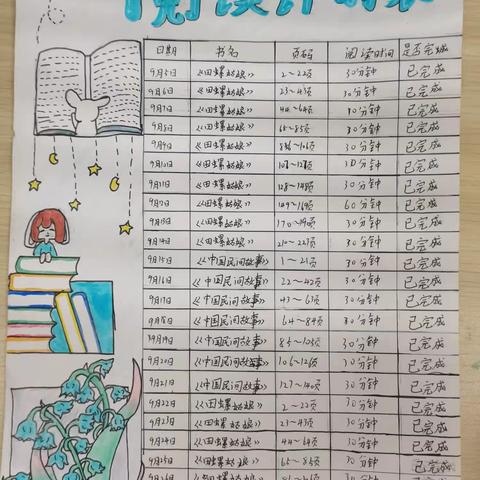 阅读计划表
日期 书名 页码 阅读时间 是否完成
9月5日 《田螺姑娘》 2~22页 30分钟 已完成
9月6日 《田螺姑娘》 23~43页 30分钟 已完成
9月7日 《田螺姑娘》 44~64页 30分钟 已完成
9月8日 《田螺姑娘》 65~85页 30分钟 已完成
9月9日 《田螺姑娘》 86~106页 30分钟 已完成
9月10日 《田螺姑娘》 107~127页 30分钟 已完成
9月11日 《田螺姑娘》 128~148页 30分钟 已完成
《田螺姑娘》 149~169页 60分钟 已完成
9月13日 《田螺姑娘》 170~190页 30分钟 已完成
9月14日 《田螺姑娘》 30分钟 已完成
9月15日 《中国民间故事》 1~21页 30分钟 已完成
9月16日 《中国民间故事》 22~42页 30分钟 已完成
9月17日 《中国民间故事》 43~63页 30分钟 已完成
9月18日 《中国民间故事》 64~84页 30分钟 已完成
9月19日 《中国民间故事》 85~105页 30分钟 已完成
9月20日 《中国民间故事》 106~126页 30分钟 已完成
9月21日 《中国民间故事》 127~140页 30分钟 已完成
9月22日 《田螺姑娘》 2~22页 30分钟 已完成
9月23日 《田螺姑娘》 23~43页 30分钟 已完成
9月24日 《田螺姑娘》 44~64页 30分钟 已完成
9月25日 《田螺姑娘》 65~85页 30分钟 已完成